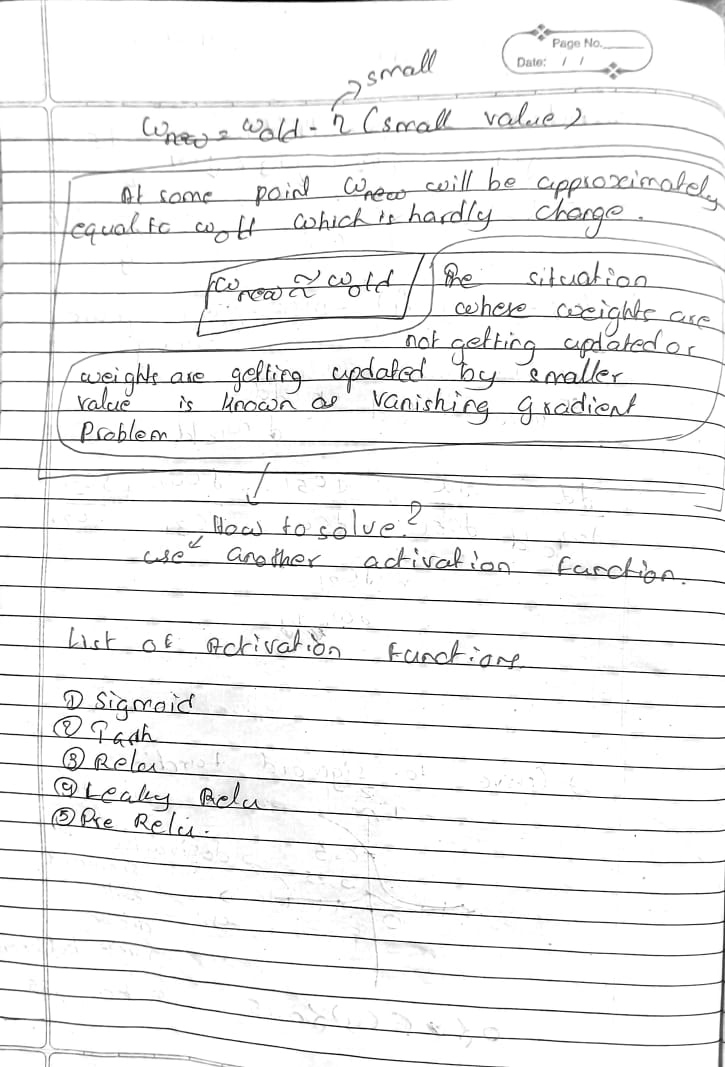 Page No.
Date: / /
small
Wnew = Wold - η (small value)
At some point Wnew will be approximately
equal to Wold which is hardly change.
Wnew ≈ Wold
The situation
where weights are
not getting updated or
weights are getting updated by smaller
value is known as vanishing gradient
Problem
How to solve?
use another activation function.
List of Activation functions
① Sigmoid
② Tanh
③ Relu
④ Leaky Relu
⑤ Pre Relu.